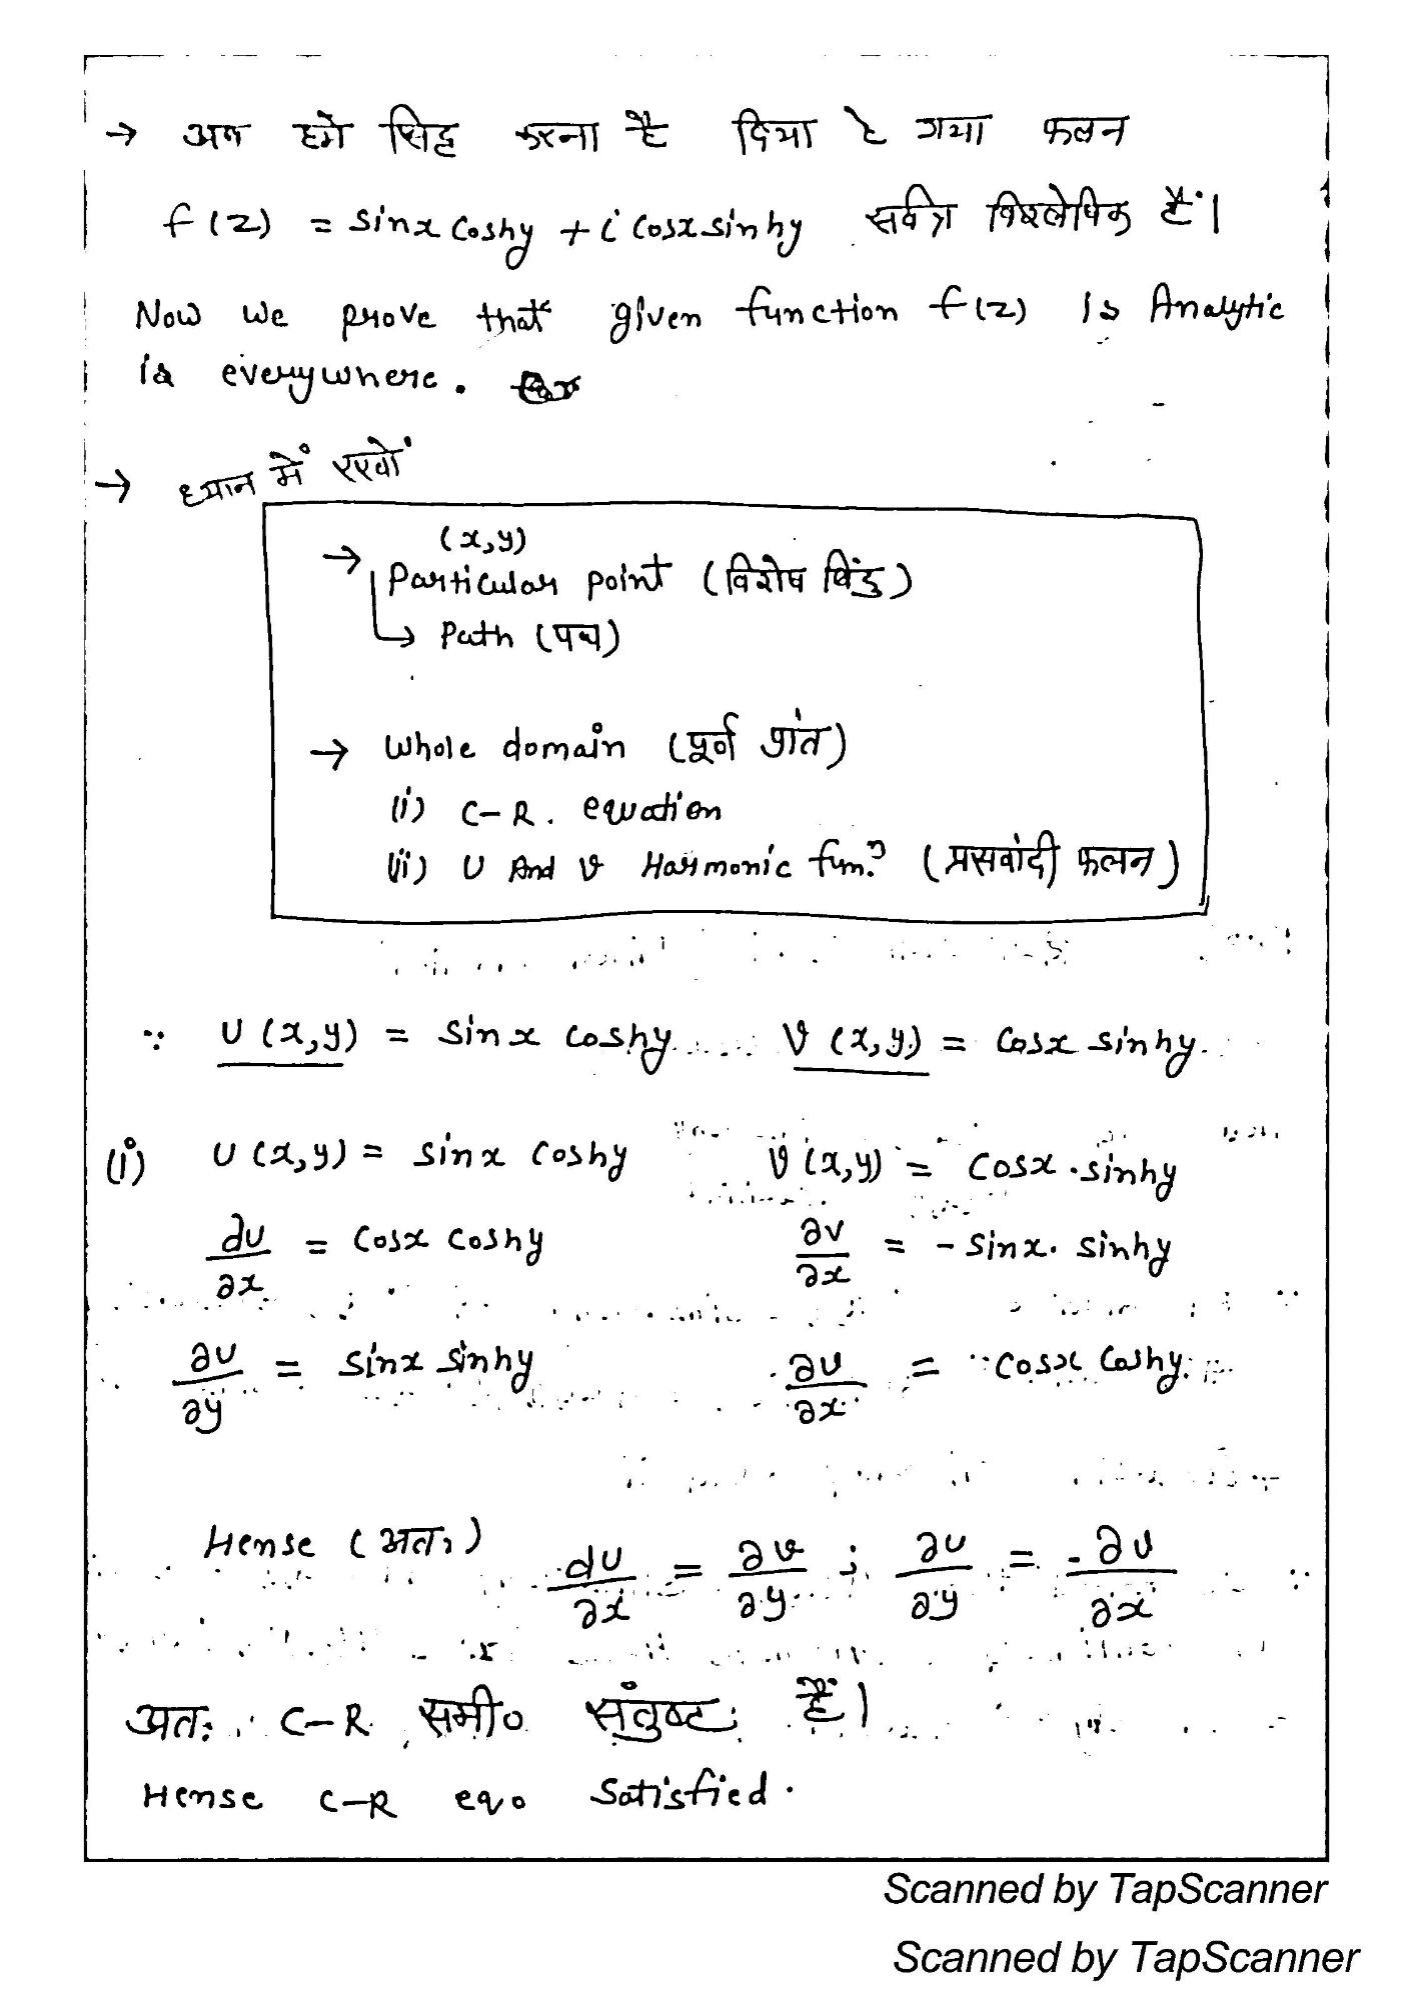 → अब हमे सिद्ध करना है दिया है गया फलन
f(z) = sinx coshy + i cosx sinhy सर्वत्र विश्लेषिक हैं।
Now we prove that given function f(z) is Analytic
is everywhere.
→ ध्यान में रखों
(x,y)
→ Particular point (विशेष बिंदु)
↳ Path (पथ)
→ Whole domain (पूर्व प्रांत)
(i) C-R. equation
(ii) U And v Harmonic fun? (प्रसवांदी फलन)
∵ U(x,y) = sinx coshy V(x,y) = cosx sinhy.
(i) U(x,y) = sinx coshy v(x,y) = cosx.sinhy
∂u/∂x = cosx coshy ∂v/∂x = -sinx. sinhy
∂u/∂y = sinx sinhy ∂v/∂x = cosx coshy.
Hense (अतः) ∂u/∂x = ∂v/∂y ; ∂u/∂y = -∂v/∂x
अतः C-R समी० संतुष्ट हैं।
Hense C-R eq. Satisfied.
Scanned by TapScanner
Scanned by TapScanner